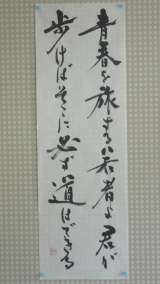 青春を旅する若者よ君が
歩けばそこに必ず道はできる